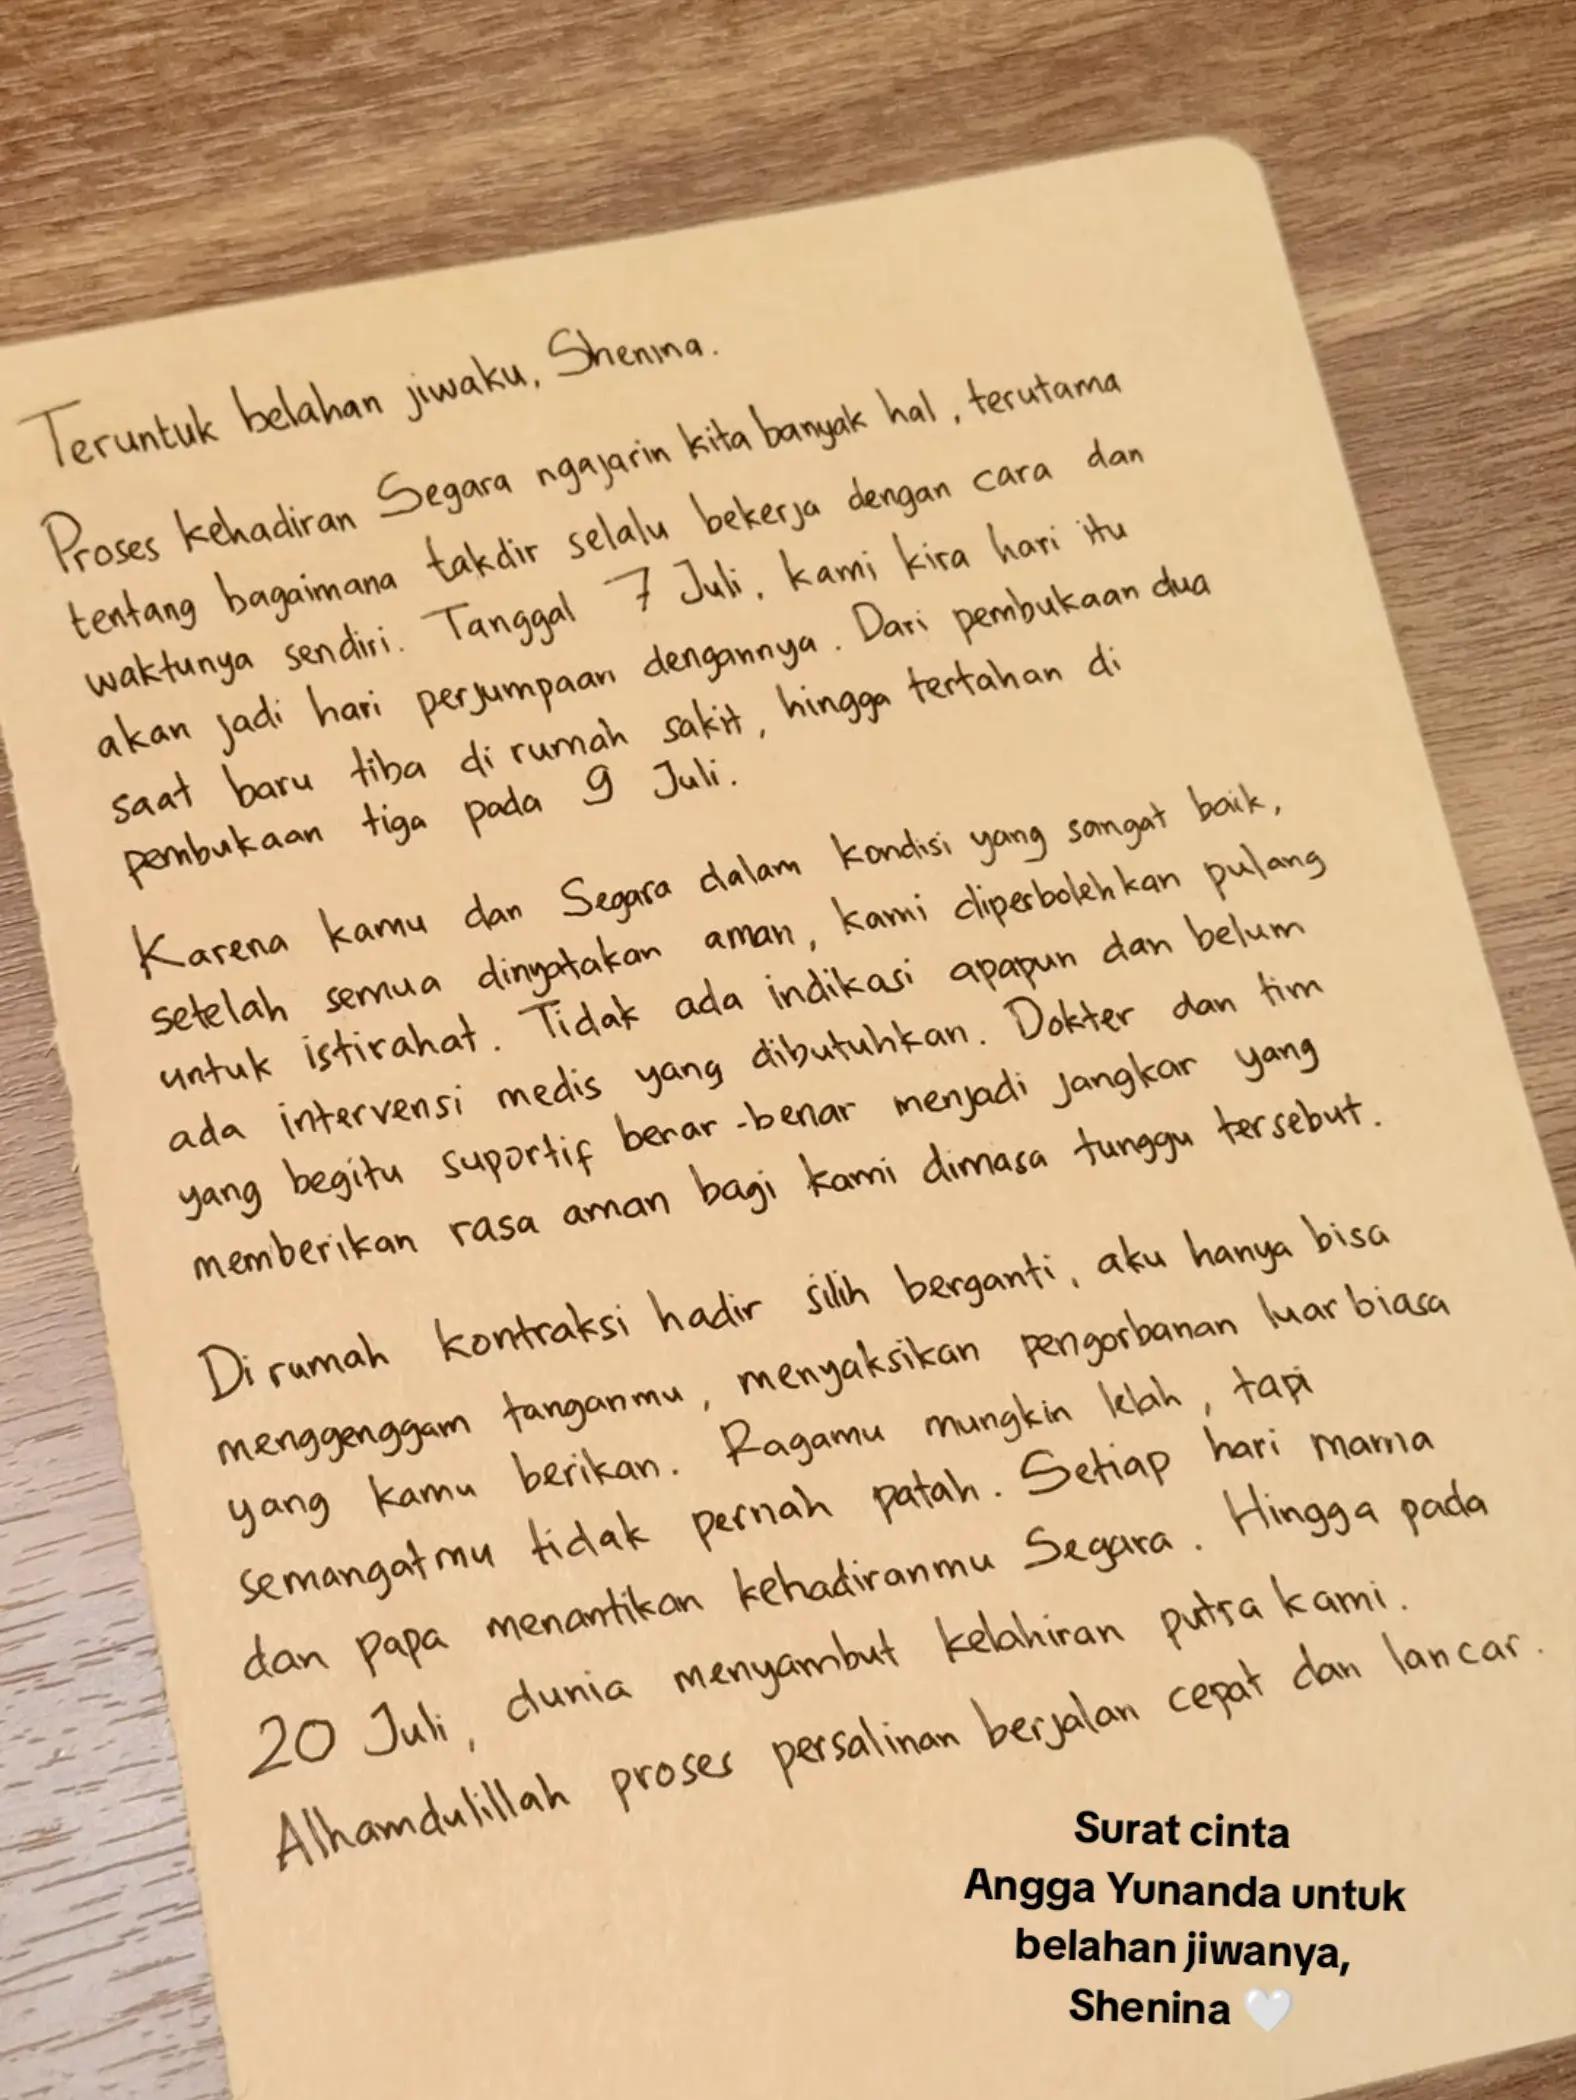 Teruntuk belahan jiwaku, Shenina.
Proses kehadiran Segara ngajarin kita banyak hal, terutama
tentang bagaimana takdir selalu bekerja dengan cara dan
waktunya sendiri. Tanggal 7 Juli, kami kira hari itu
akan jadi hari perjumpaan dengannya. Dari pembukaan dua
saat baru tiba di rumah sakit, hingga tertahan di
pembukaan tiga pada 9 Juli.
Karena kamu dan Segara dalam kondisi yang sangat baik,
setelah semua dinyatakan aman, kami diperbolehkan pulang
untuk istirahat. Tidak ada indikasi apapun dan belum
ada intervensi medis yang dibutuhkan. Dokter dan tim
yang begitu suportif benar-benar menjadi jangkar yang
memberikan rasa aman bagi kami dimasa tunggu tersebut.
Di rumah kontraksi hadir silih berganti, aku hanya bisa
menggenggam tanganmu, menyaksikan pengorbanan luar biasa
yang kamu berikan. Ragamu mungkin lelah, tapi
semangatmu tidak pernah patah. Setiap hari mama
dan papa menantikan kehadiranmu Segara. Hingga pada
20 Juli, dunia menyambut kelahiran putra kami.
Alhamdulillah proses persalinan berjalan cepat dan lancar.
Surat cinta
Angga Yunanda untuk
belahan jiwanya,
Shenina 🤍